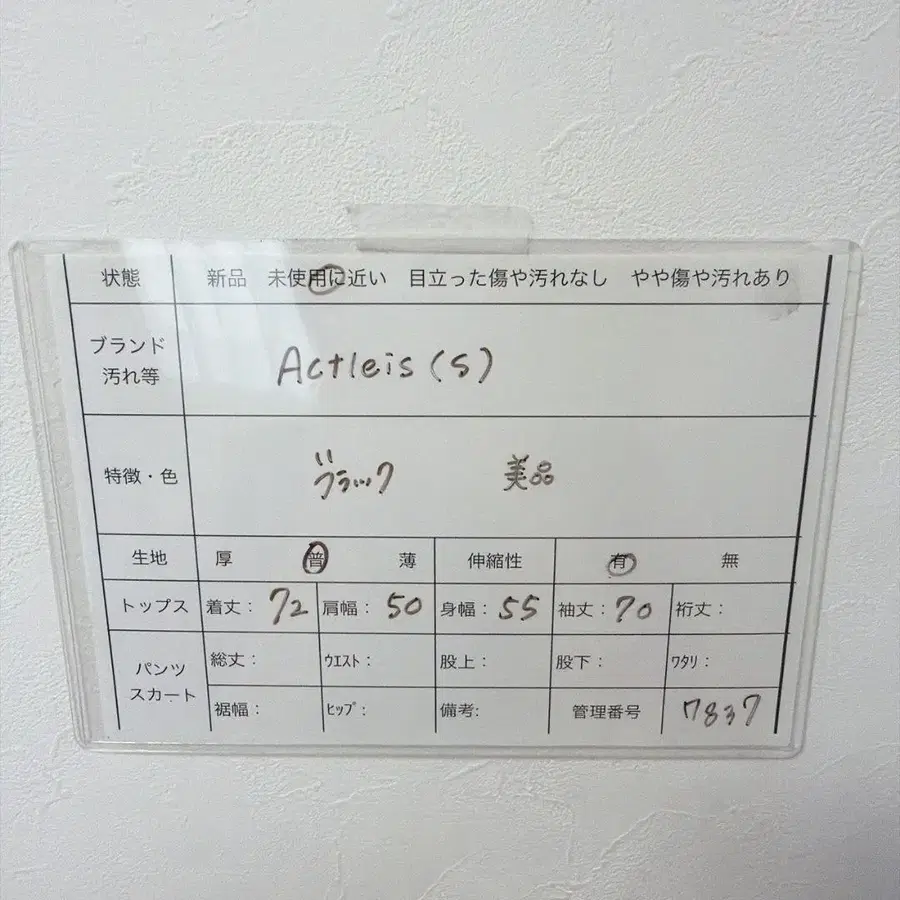 状態 新品 未使用に近い 目立った傷や汚れなし やや傷や汚れあり
ブランド
汚れ等 Actleis (S)
特徴・色 ブラック 美品
生地 厚 普 薄 伸縮性 有 無
トップス 着丈: 72 肩幅: 50 身幅: 55 袖丈: 70 裄丈:
パンツ
スカート
総丈: ウエスト: 股上: 股下: ワタリ:
裾幅: ヒップ: 備考: 管理番号 7837